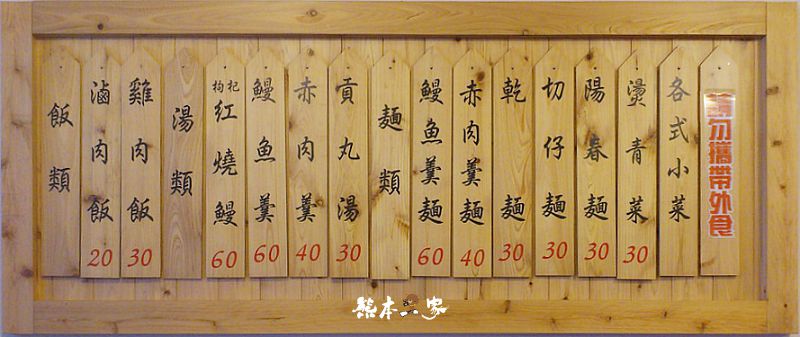 飯類
滷肉飯 20
雞肉飯 30
湯類
枸杞紅燒鰻 60
鰻魚羹 60
赤肉羹 40
貢丸湯 30
麵類
鰻魚羹麵 60
赤肉羹麵 40
乾麵 30
切仔麵 30
陽春麵 30
燙青菜 30
各式小菜
請勿攜帶外食
熊本一家